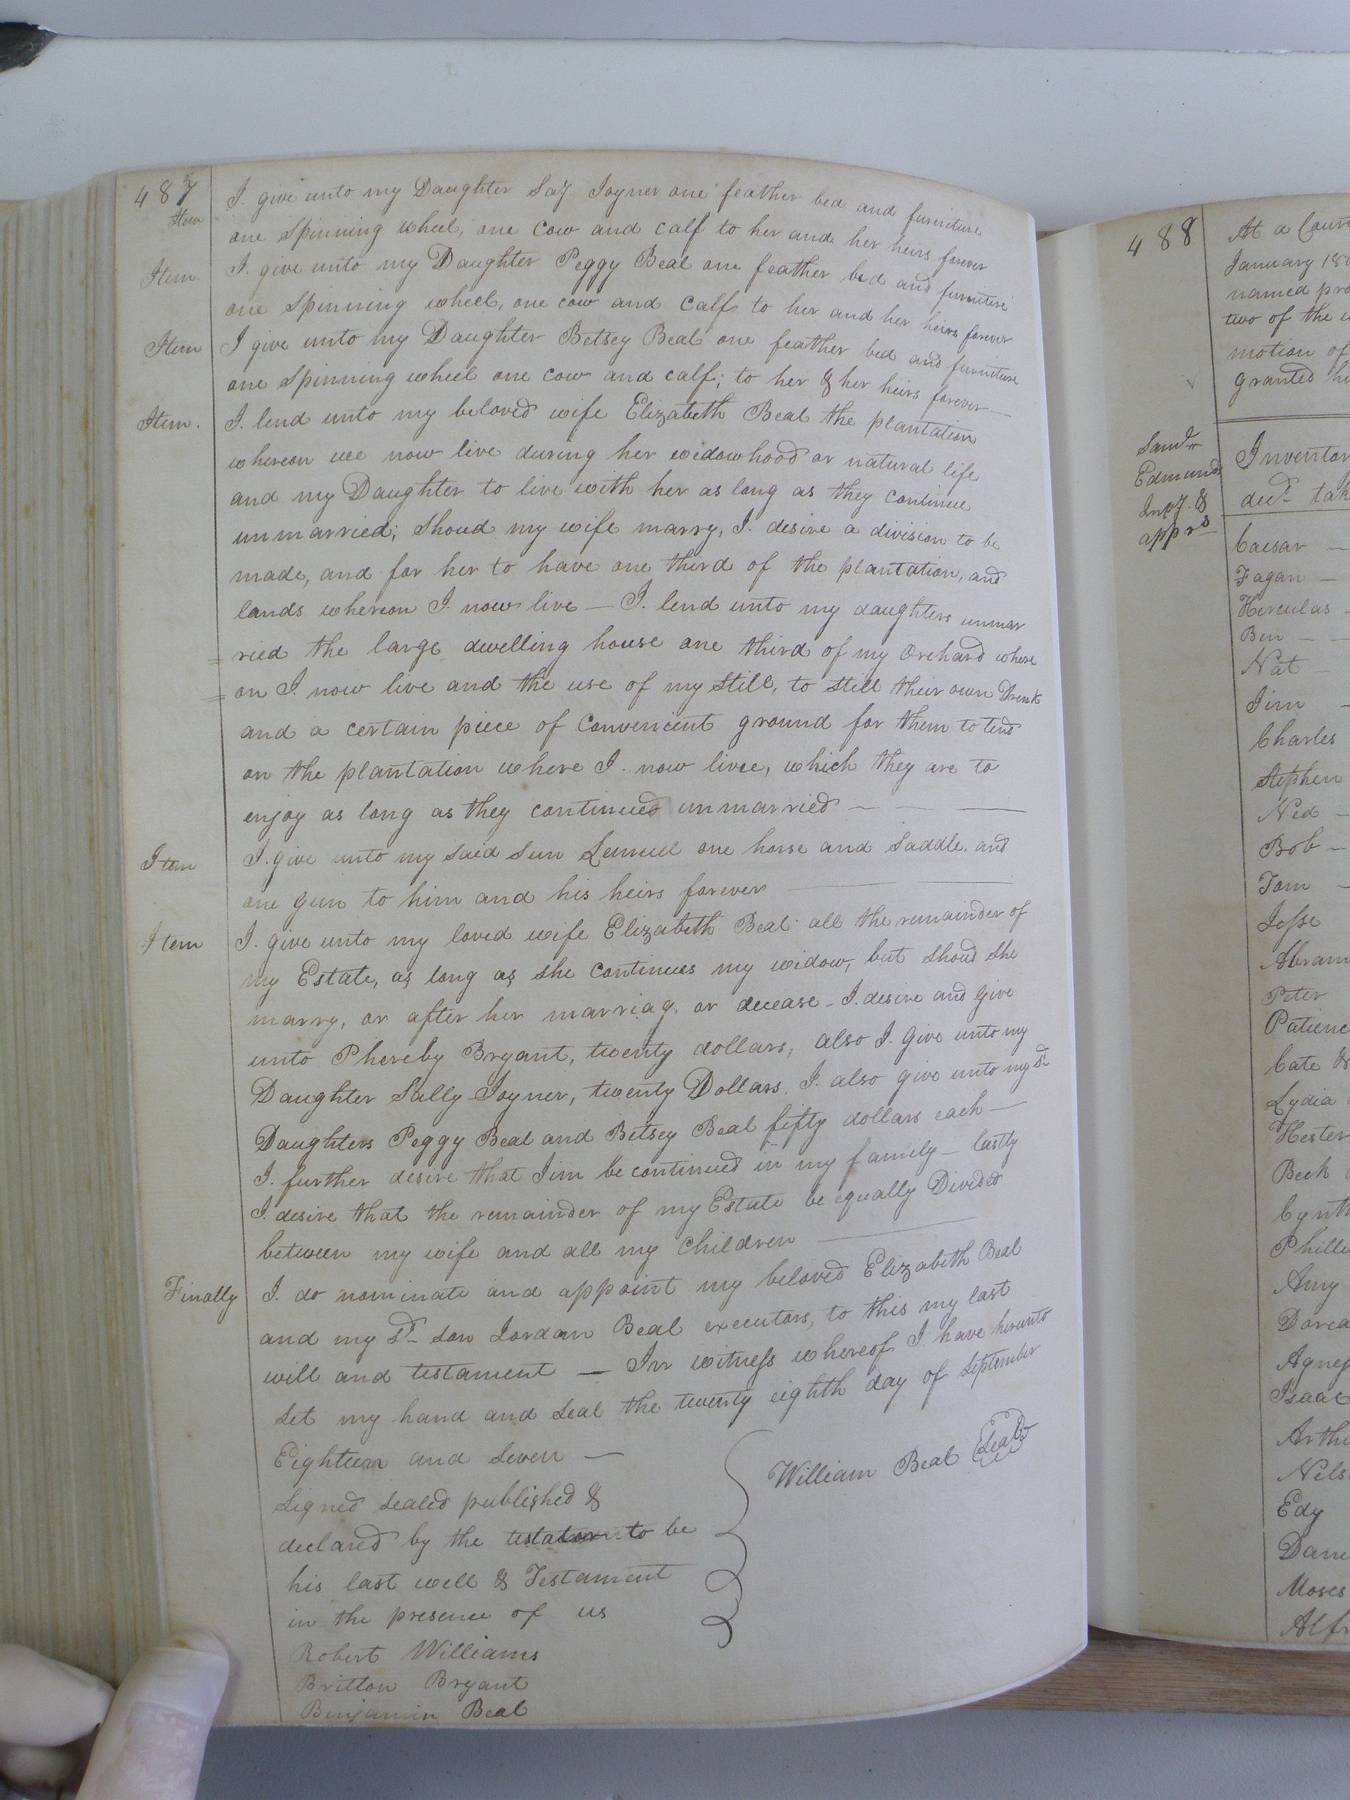 487
Item I give unto my Daughter Say Joyner one feather bed and furniture
one spinning wheel, one cow and calf to her and her heirs forever
Item I give unto my Daughter Peggy Beal one feather bed and furniture
one spinning wheel, one cow and calf to her and her heirs forever
Item I give unto my Daughter Betsey Beal one feather bed and furniture
one spinning wheel one cow and calf; to her & her heirs forever —
Item. I lend unto my beloved wife Elizabeth Beal the plantation
whereon we now live during her widowhood or natural life
and my Daughter to live with her as long as they continue
unmarried; shoud my wife marry, I desire a division to be
made, and for her to have one third of the plantation, and
lands whereon I now live — I lend unto my daughters unmar
= ried the large dwelling house one third of my Orchard where
= on I now live and the use of my still, to still their own Drink
and a certain piece of convenient ground for them to tend
on the plantation where I now livee, which they are to
enjoy as long as they continued unmarried — — —
Item I give unto my said son Lemuel one horse and saddle and
one gun to him and his heirs forever —
Item I give unto my loved wife Elizabeth Beal all the remainder of
my Estate, as long as she continues my widow, but shoud she
marry, or after her marriag, or decease - I desire and give
unto Phereby Bryant, twenty dollars, also I give unto my
Daughter Sally Joyner, twenty Dollars. I also give unto my sd
Daughters Peggy Beal and Betsey Beal fifty dollars each —
I further desire that Jim be continued in my family — lastly
I desire that the remainder of my Estate be equally Divided
between my wife and all my children —
Finally I do nominate and appoint my beloved Elizabeth Beal
and my sd son Jordan Beal executors, to this my last
will and testament — In witness whereof I have hereunto
set my hand and seal the twenty eighth day of September
Eighteen and seven —
Signed sealed published &
declared by the testator to be
his last will & Testament
in the presence of us
William Beal Seal
Robert Williams
Britton Bryant
Benjamin Beal
488
At a Court
January 18
named pro
two of the w
motion of
granted h
Saml
Edmunds
Invy. &
apprs
Inventor
decd tak
Caesar —
Fagan —
Herculas -
Ben — —
Nat —
Jim —
Charles
Stephen
Ned —
Bob —
Tom —
Jesse
Abram
Peter
Patienc
Cate &
Lydia
Hester
Beck
Cynth
Philli
Amy
Dorca
Agnes
Isaac
Arthu
Nels
Edy
Dan
Moses
Alfr